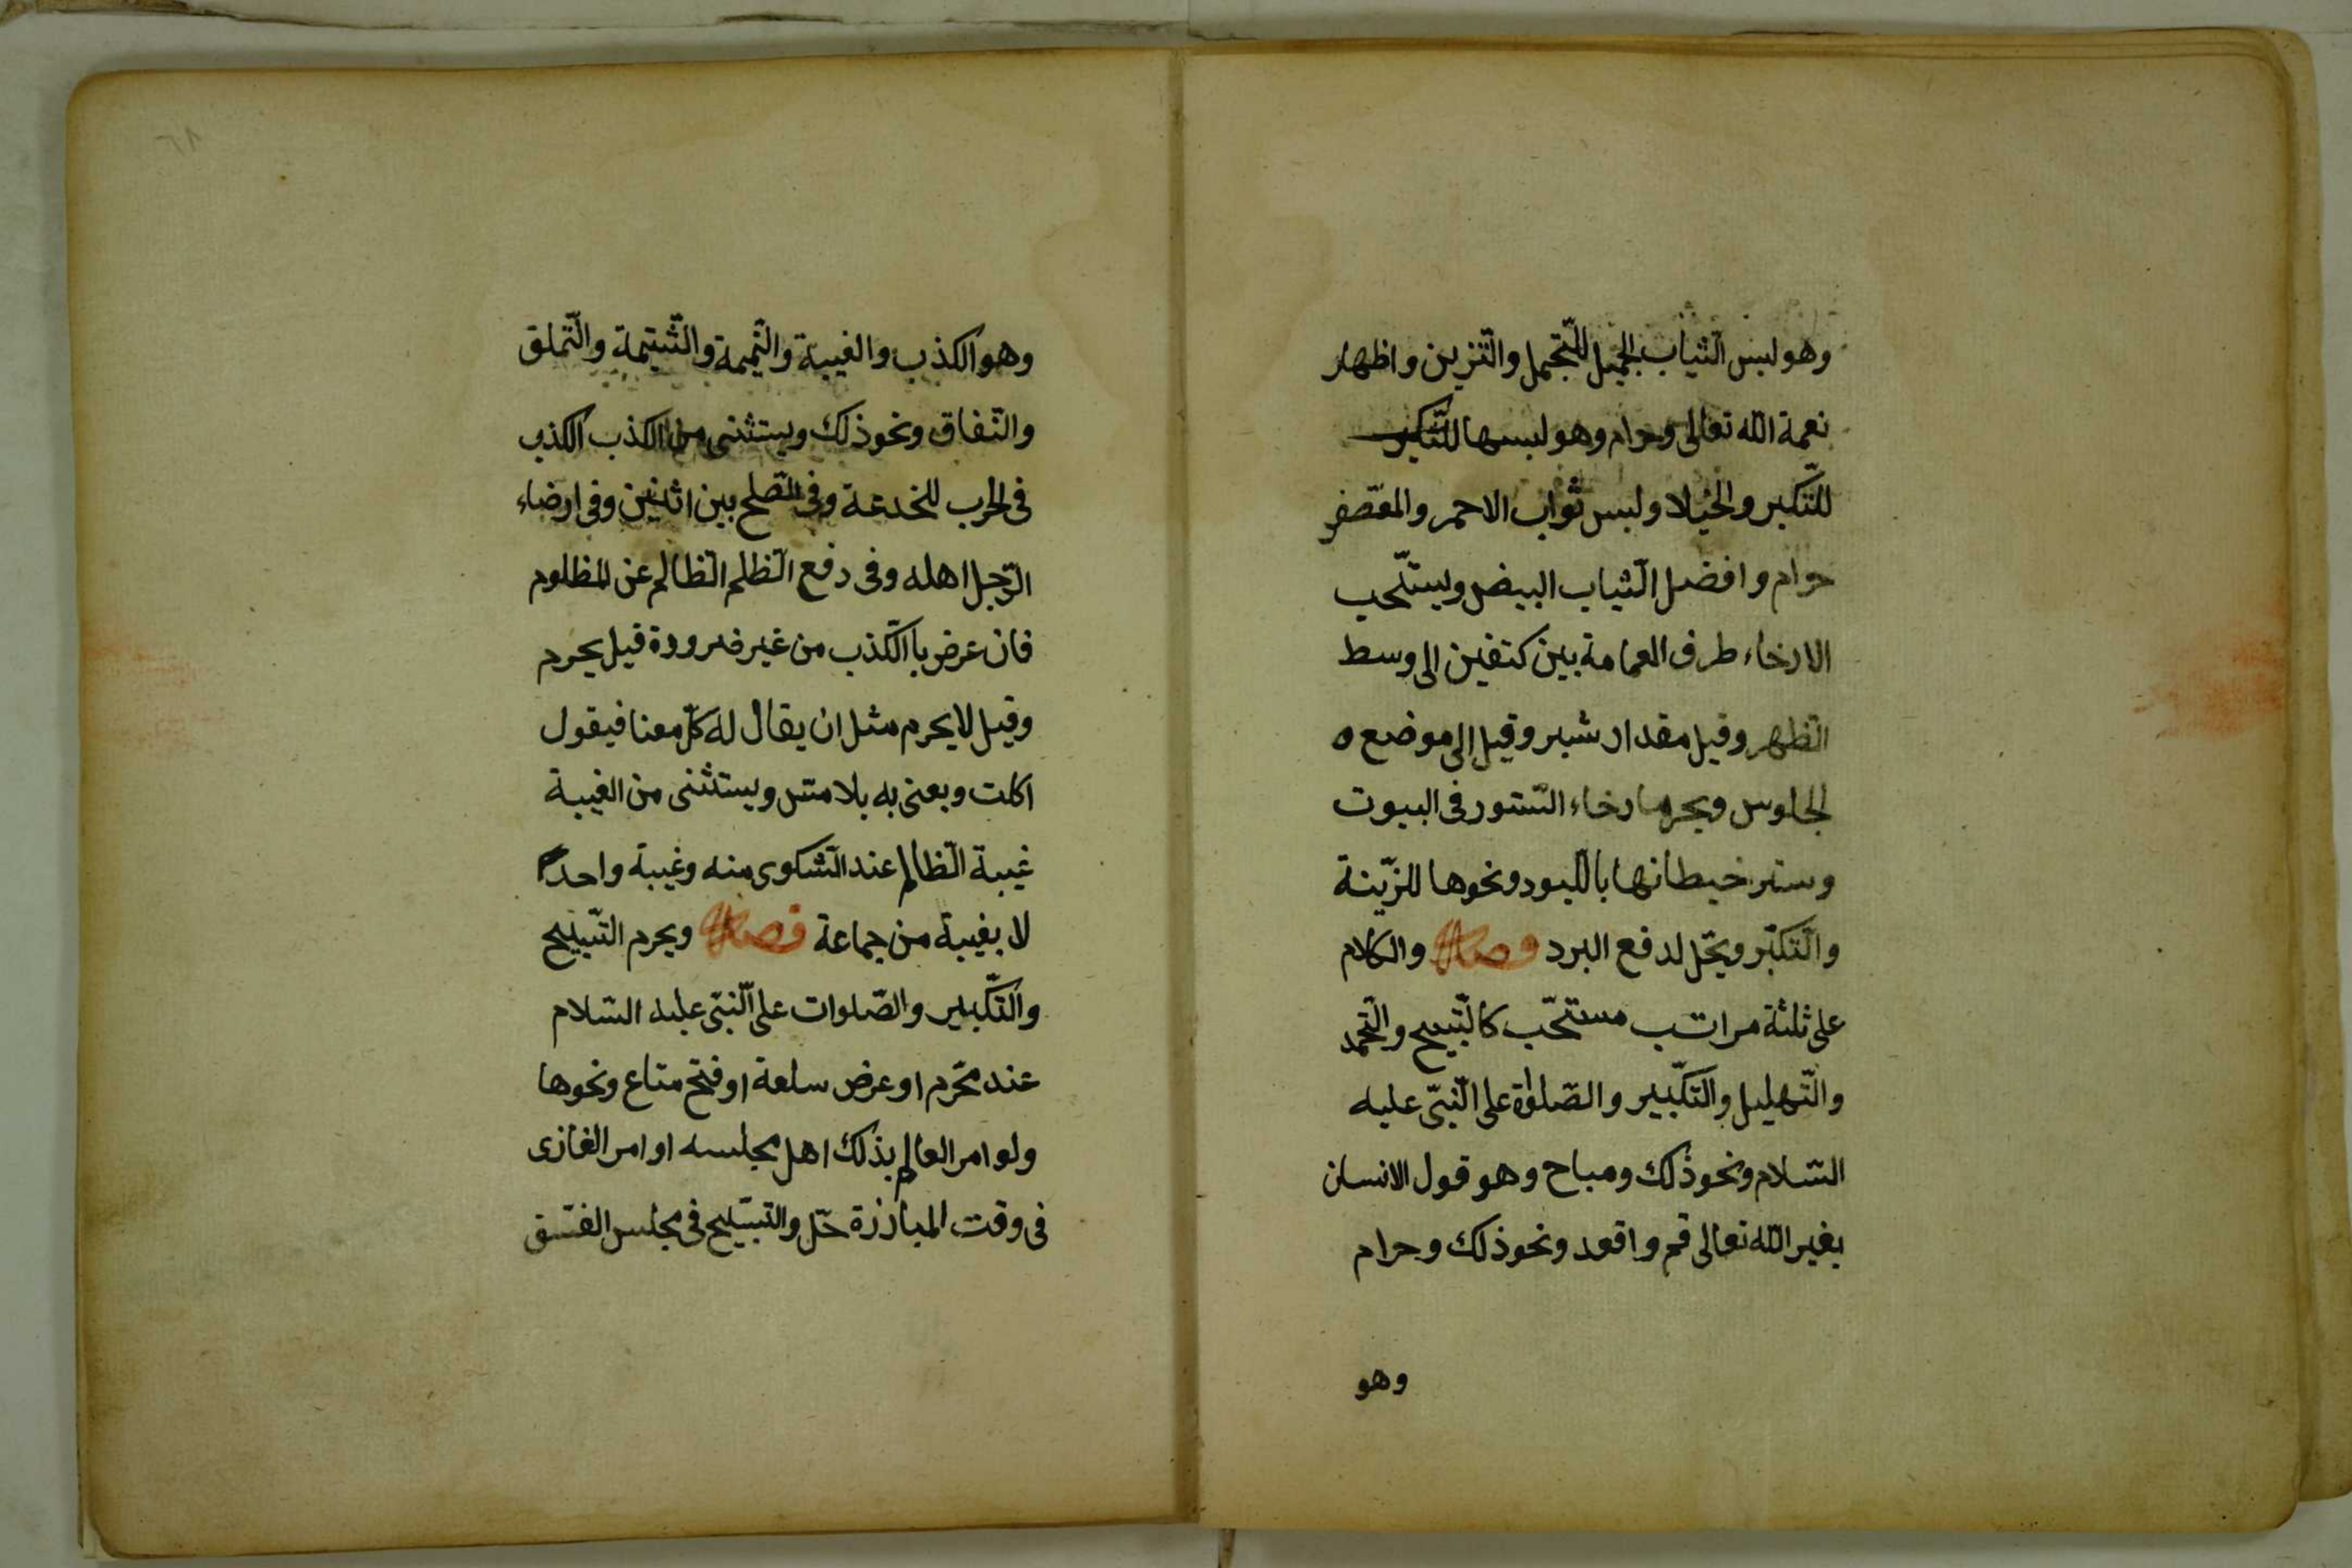 وهو لبس الثياب الجميل للتجمل والتزين واظهار
نعمة الله تعالى وحرام وهو لبسها للتكبر
للتكبر والخيلا ولبس ثواب الاحمر والمعصفر
حرام وافضل الثياب البيض ويستحب
الارخاء طرف العمامة بين كتفين الى وسط
الظهر وقيل مقدار شبر وقيل الى موضع ه
الجلوس ويحرم ارخاء الستور فى البيوت
وستر خيطانها بااللبود ونحوها للزينة
والتكبر ويحل لدفع البرد فصل والكلام
على ثلثة مراتب مستحب كالتسبيح والتحمد
والتهليل والتكبير والصلوة على النبى عليه
السلام ونحو ذلك ومباح وهو قول الانسان
بغير الله تعالى قم واقعد ونحو ذلك وحرام
وهو
٨٢
وهو الكذب والغيبة والنميمة والشتيمة والتملق
والنفاق ونحو ذلك ويستثنى من الكذب الكذب
فى الحرب للخدعة وفى الصلح بين اثنين وفى ارضاء
الرجل اهله وفى دفع الظلم الظالم عن المظلوم
فان عرض باالكذب من غير ضرورة قيل يحرم
وقيل لا يحرم مثل ان يقال له كل معنا فيقول
اكلت ويعنى به بلا متس ويستثنى من الغيبة
غيبة الظالم عند الشكوى منه وغيبة واحد
لا بغيبة من جماعة فصل ويحرم التسبيح
والتكبير والصلوات على النبى عليه السلام
عند محرم او عرض سلعة او فتح متاع ونحوها
ولو امر العالم بذلك اهل مجلسه او امر الغازى
فى وقت المبارزة حل والتسبيح فى مجلس الفسق